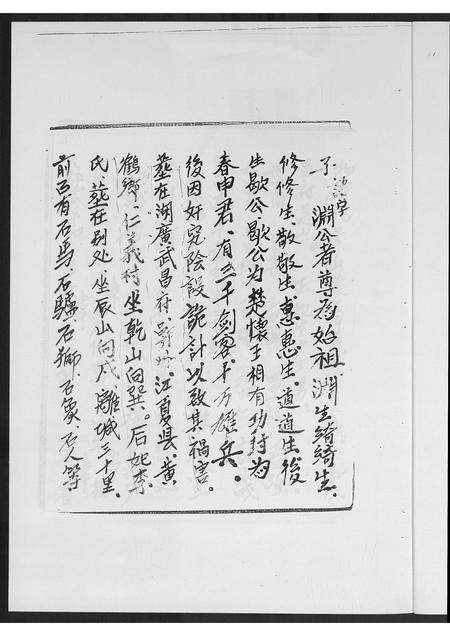 了
淵公者尊為始祖淵生綺綺生、
修修生、敬敬生、惠惠生、道道生、後
生歇公、歇公為楚懷王相有功封為
春申君、有三千劍客、千方雄兵、
後因奸究陰設詭計以致其禍害。
墓在湖廣武昌府、鄂州、江夏县、黃
鶴鄉、仁義村坐乾山向巽。后妣李
氏、墓在别处坐辰山向戌、離城三十里、
前后有石馬、石騾石獅、石象、石人等